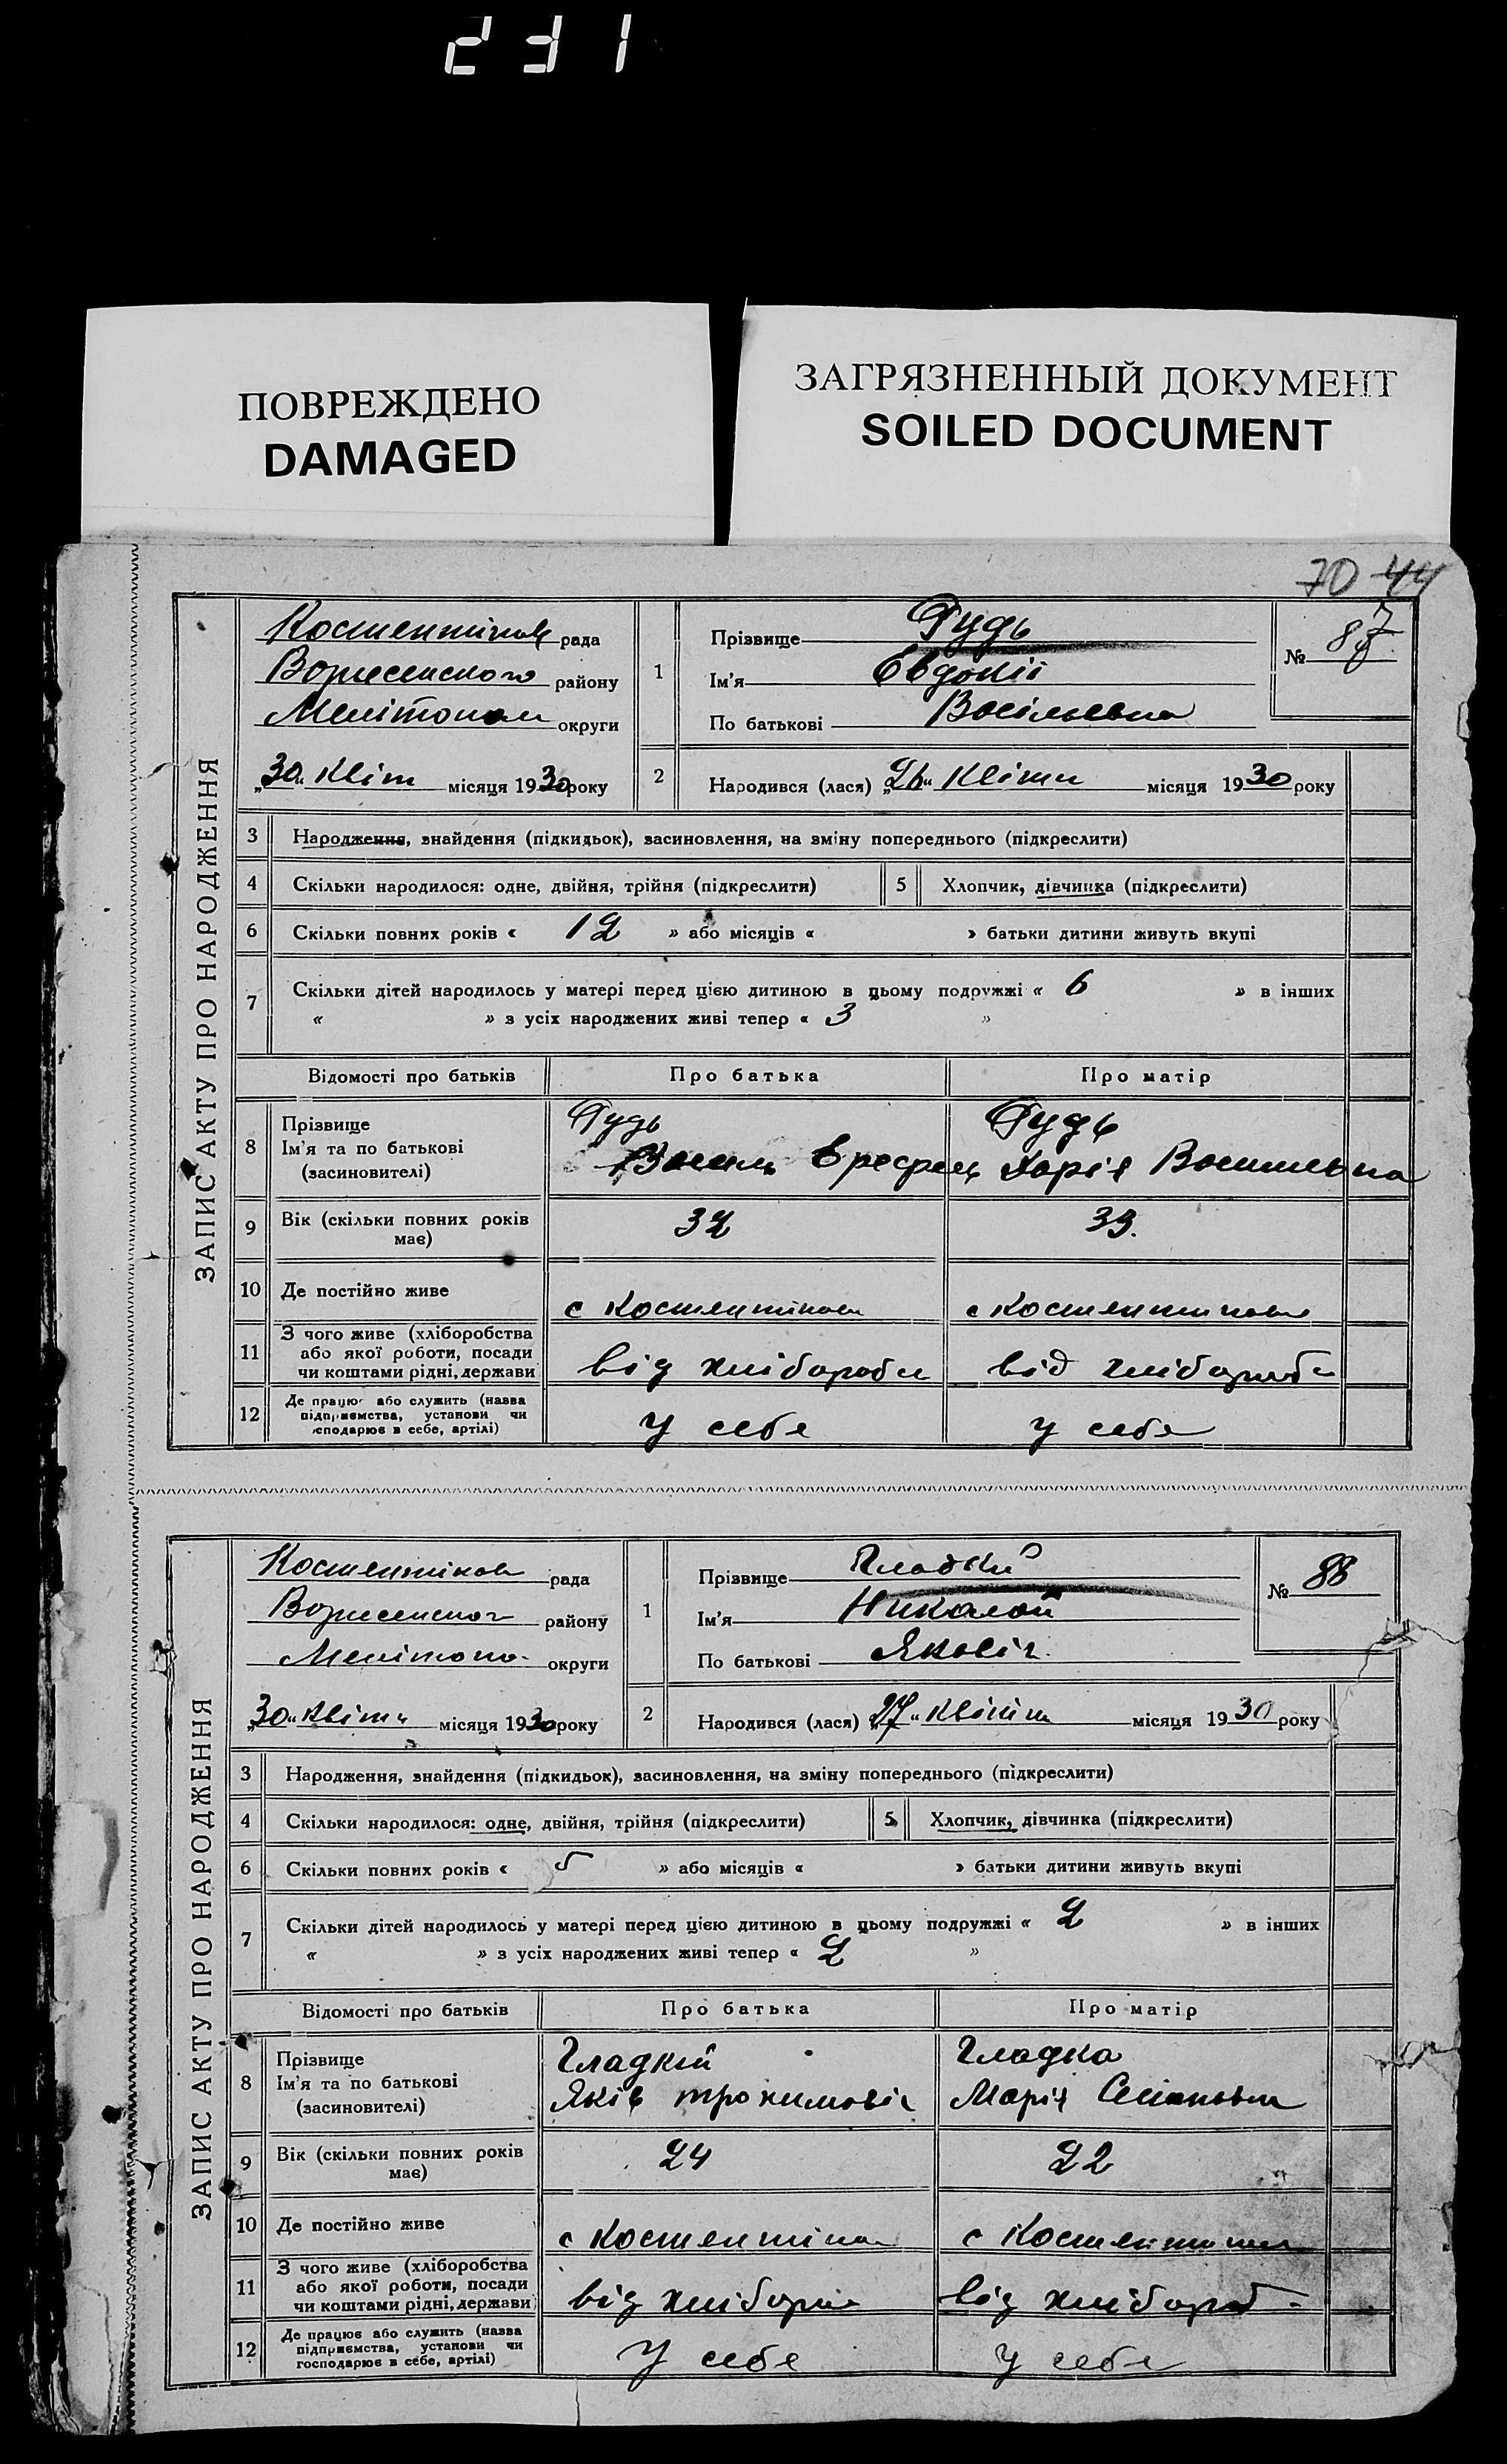 231
ПОВРЕЖДЕНО
DAMAGED
ЗАГРЯЗНЕННЫЙ ДОКУМЕНТ
SOILED DOCUMENT
70 44
ЗАПИС АКТУ ПРО НАРОДЖЕННЯ
Костентінов рада
района району
Мелітополь округи
„30“ Квіт місяця 1930 року
1
Прізвище Рудь
Ім'я Евдокіі
По батькові Васільевна
№ 87
2 Народився (лася) „26“ Квітн місяця 1930 року
3 Народження, знайдення (підкидьок), засиновлення, на зміну попереднього (підкреслити)
4 Скільки народилося: одне, двійня, трійня (підкреслити) 5 Хлопчик, дівчинка (підкреслити)
6 Скільки повних років « 12 » або місяців « » батьки дитини живуть вкупі
7 Скільки дітей народилось у матері перед цією дитиною в цьому подружжі « 6 » в інших
« » з усіх народжених живі тепер « 3 »
Відомості про батьків Про батька Про матір
8 Прізвище
Ім'я та по батькові
(засиновителі)
Рудь
Василь
Рудь
Дарія Василевна
9 Вік (скільки повних років
має)
32 33.
10 Де постійно живе с Костентінов с Костентинов
11 З чого живе (хліборобства
або якої роботи, посади
чи коштами рідні, держави
від хлібороби від хлібороб
12 Де працює або служить (назва
підприємства, установи чи
господарює в себе, артілі)
у себе у себе
ЗАПИС АКТУ ПРО НАРОДЖЕННЯ
Костентінов рада
району
Мелітопо. округи
„30“ Квітн місяця 1930 року
1
Прізвище Гладкий
Ім'я Николай
По батькові Яковіч.
№ 88
2 Народився (лася) „27“ Квітн місяця 1930 року
3 Народження, знайдення (підкидьок), засиновлення, на зміну попереднього (підкреслити)
4 Скільки народилося: одне, двійня, трійня (підкреслити) 5 Хлопчик, дівчинка (підкреслити)
6 Скільки повних років « 5 » або місяців « » батьки дитини живуть вкупі
7 Скільки дітей народилось у матері перед цією дитиною в цьому подружжі « 2 » в інших
« » з усіх народжених живі тепер « 2 »
Відомості про батьків Про батька Про матір
8 Прізвище
Ім'я та по батькові
(засиновителі)
Гладкій
Яків трохимовіч
Гладка
Марія Семеновна
9 Вік (скільки повних років
має)
24 22
10 Де постійно живе с Костентінов с Костентинов
11 З чого живе (хліборобства
або якої роботи, посади
чи коштами рідні, держави
від хлібороб від хлібороб
12 Де працює або служить (назва
підприємства, установи чи
господарює в себе, артілі)
У себе у себе